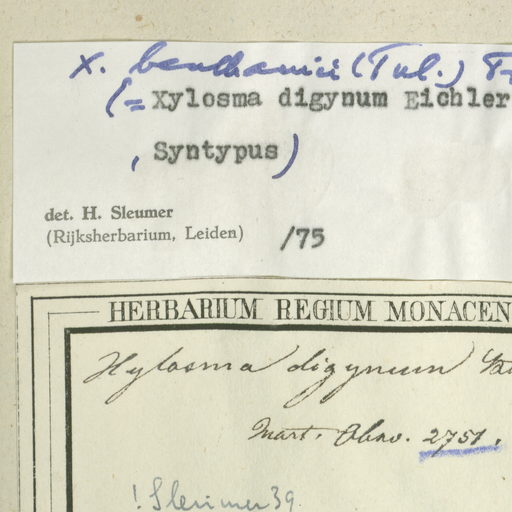 X. benthamii (Tul.)
(= Xylosma digynum Eichler
, Syntypus)
det. H. Sleumer
(Rijksherbarium, Leiden) /75
HERBARIUM REGIUM MONACEN
Xylosma digynum
Mart. Obsv. 2751.
! Sleumer 39